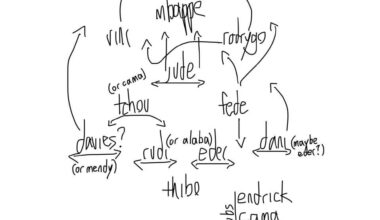 mbappe
vini rodrygo
jude
(or cama)
tchou fede
davies? (or alaba) dani (maybe
(or mendy) rudi eder eder?)
thibo
subs endrick
cama